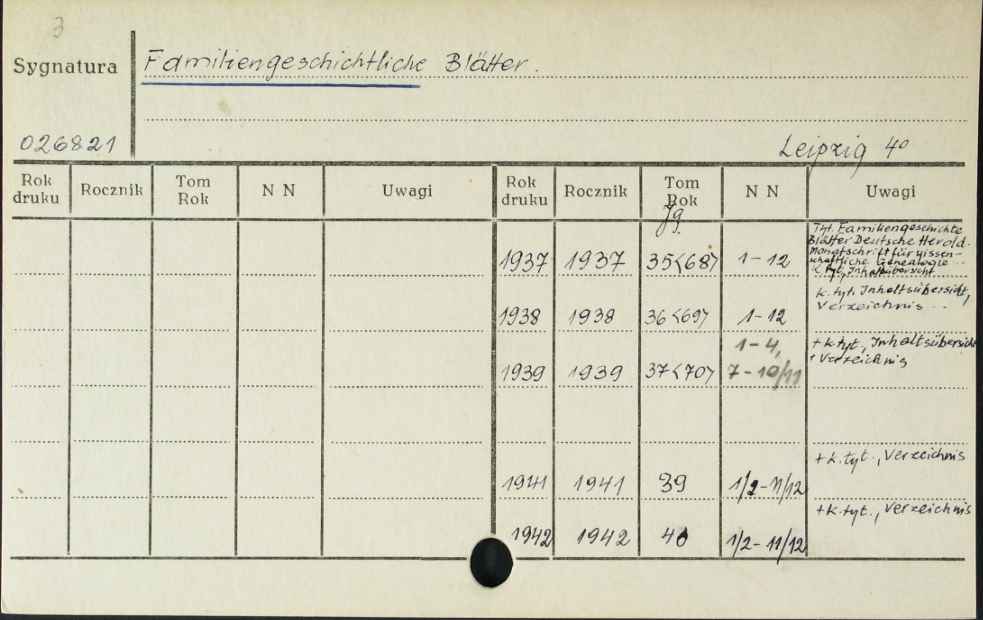 3
Sygnatura Familiengeschichtliche Blätter.
026821 Leipzig 4°
Rok druku Rocznik Tom Rok N N Uwagi Rok druku Rocznik Tom Rok N N Uwagi
Jg.
Tyt. Familiengeschichte
Blätter Deutsche Herold.
Monatschrift für wissen-
schaftliche Genealogie
K. tyt. Inhaltsübersicht
1937 1937 35<68> 1-12
K. tyt. Inhaltsübersicht,
Verzeichnis
1938 1938 36<69> 1-12
1-4, + k. tyt., Inhaltsübersicht
+ Verzeichnis
1939 1939 37<70> 7-10/11
+ k. tyt., Verzeichnis
1941 1941 39 1/2-11/12
+ k. tyt., Verzeichnis
1942 1942 40 1/2-11/12